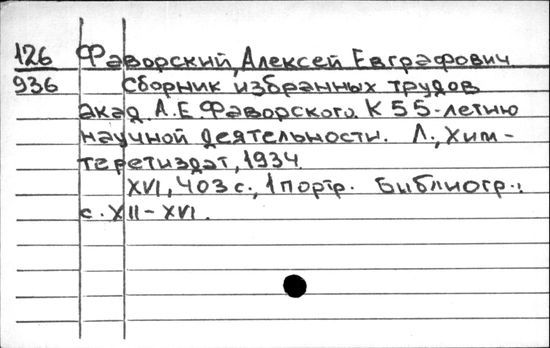 126 Фаворский, Алексей Евграфович
936 Сборник избранных трудов
акад. А.Е. Фаворского. К 55-летию
научной деятельности. Л., Хим-
теретиздат, 1934.
XVI, 403 с., 1 портр. Библиогр.:
с. XII-XVI.